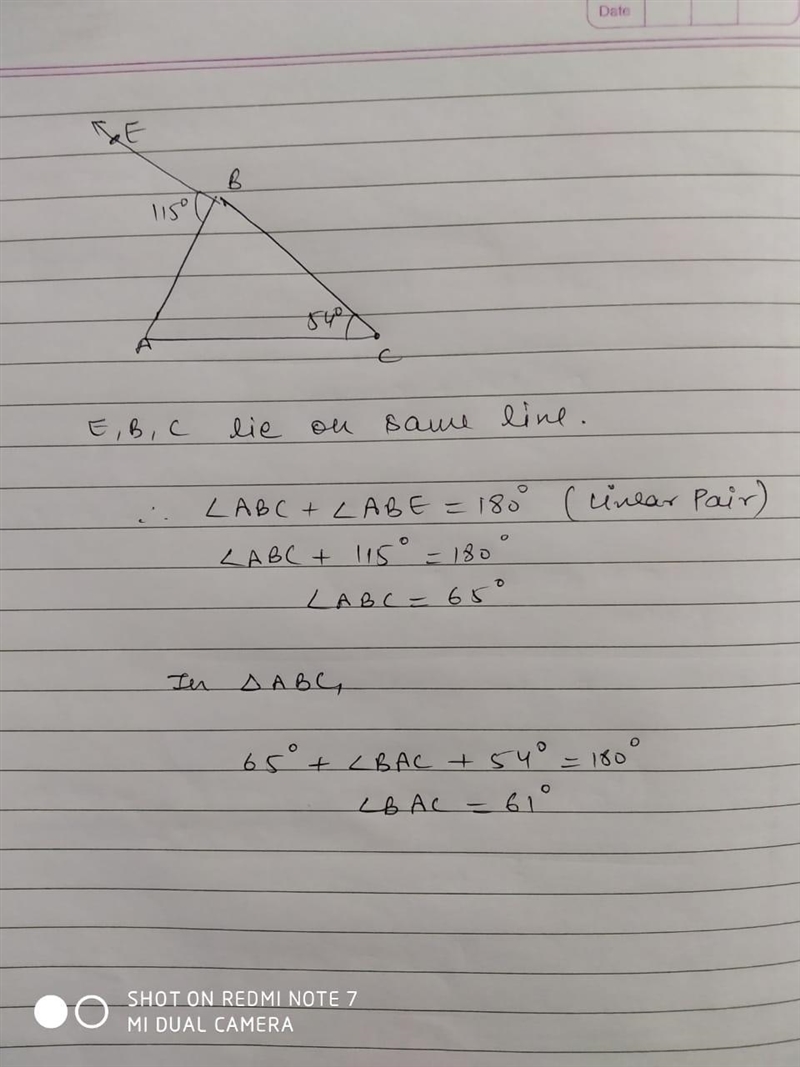 Date
E
B
115°
54°
A
C
E, B, C lie on same line.
∴ ∠ABC + ∠ABE = 180° (Linear Pair)
∠ABC + 115° = 180°
∠ABC = 65°
In △ABC,
65° + ∠BAC + 54° = 180°
∠BAC = 61°
SHOT ON REDMI NOTE 7
MI DUAL CAMERA